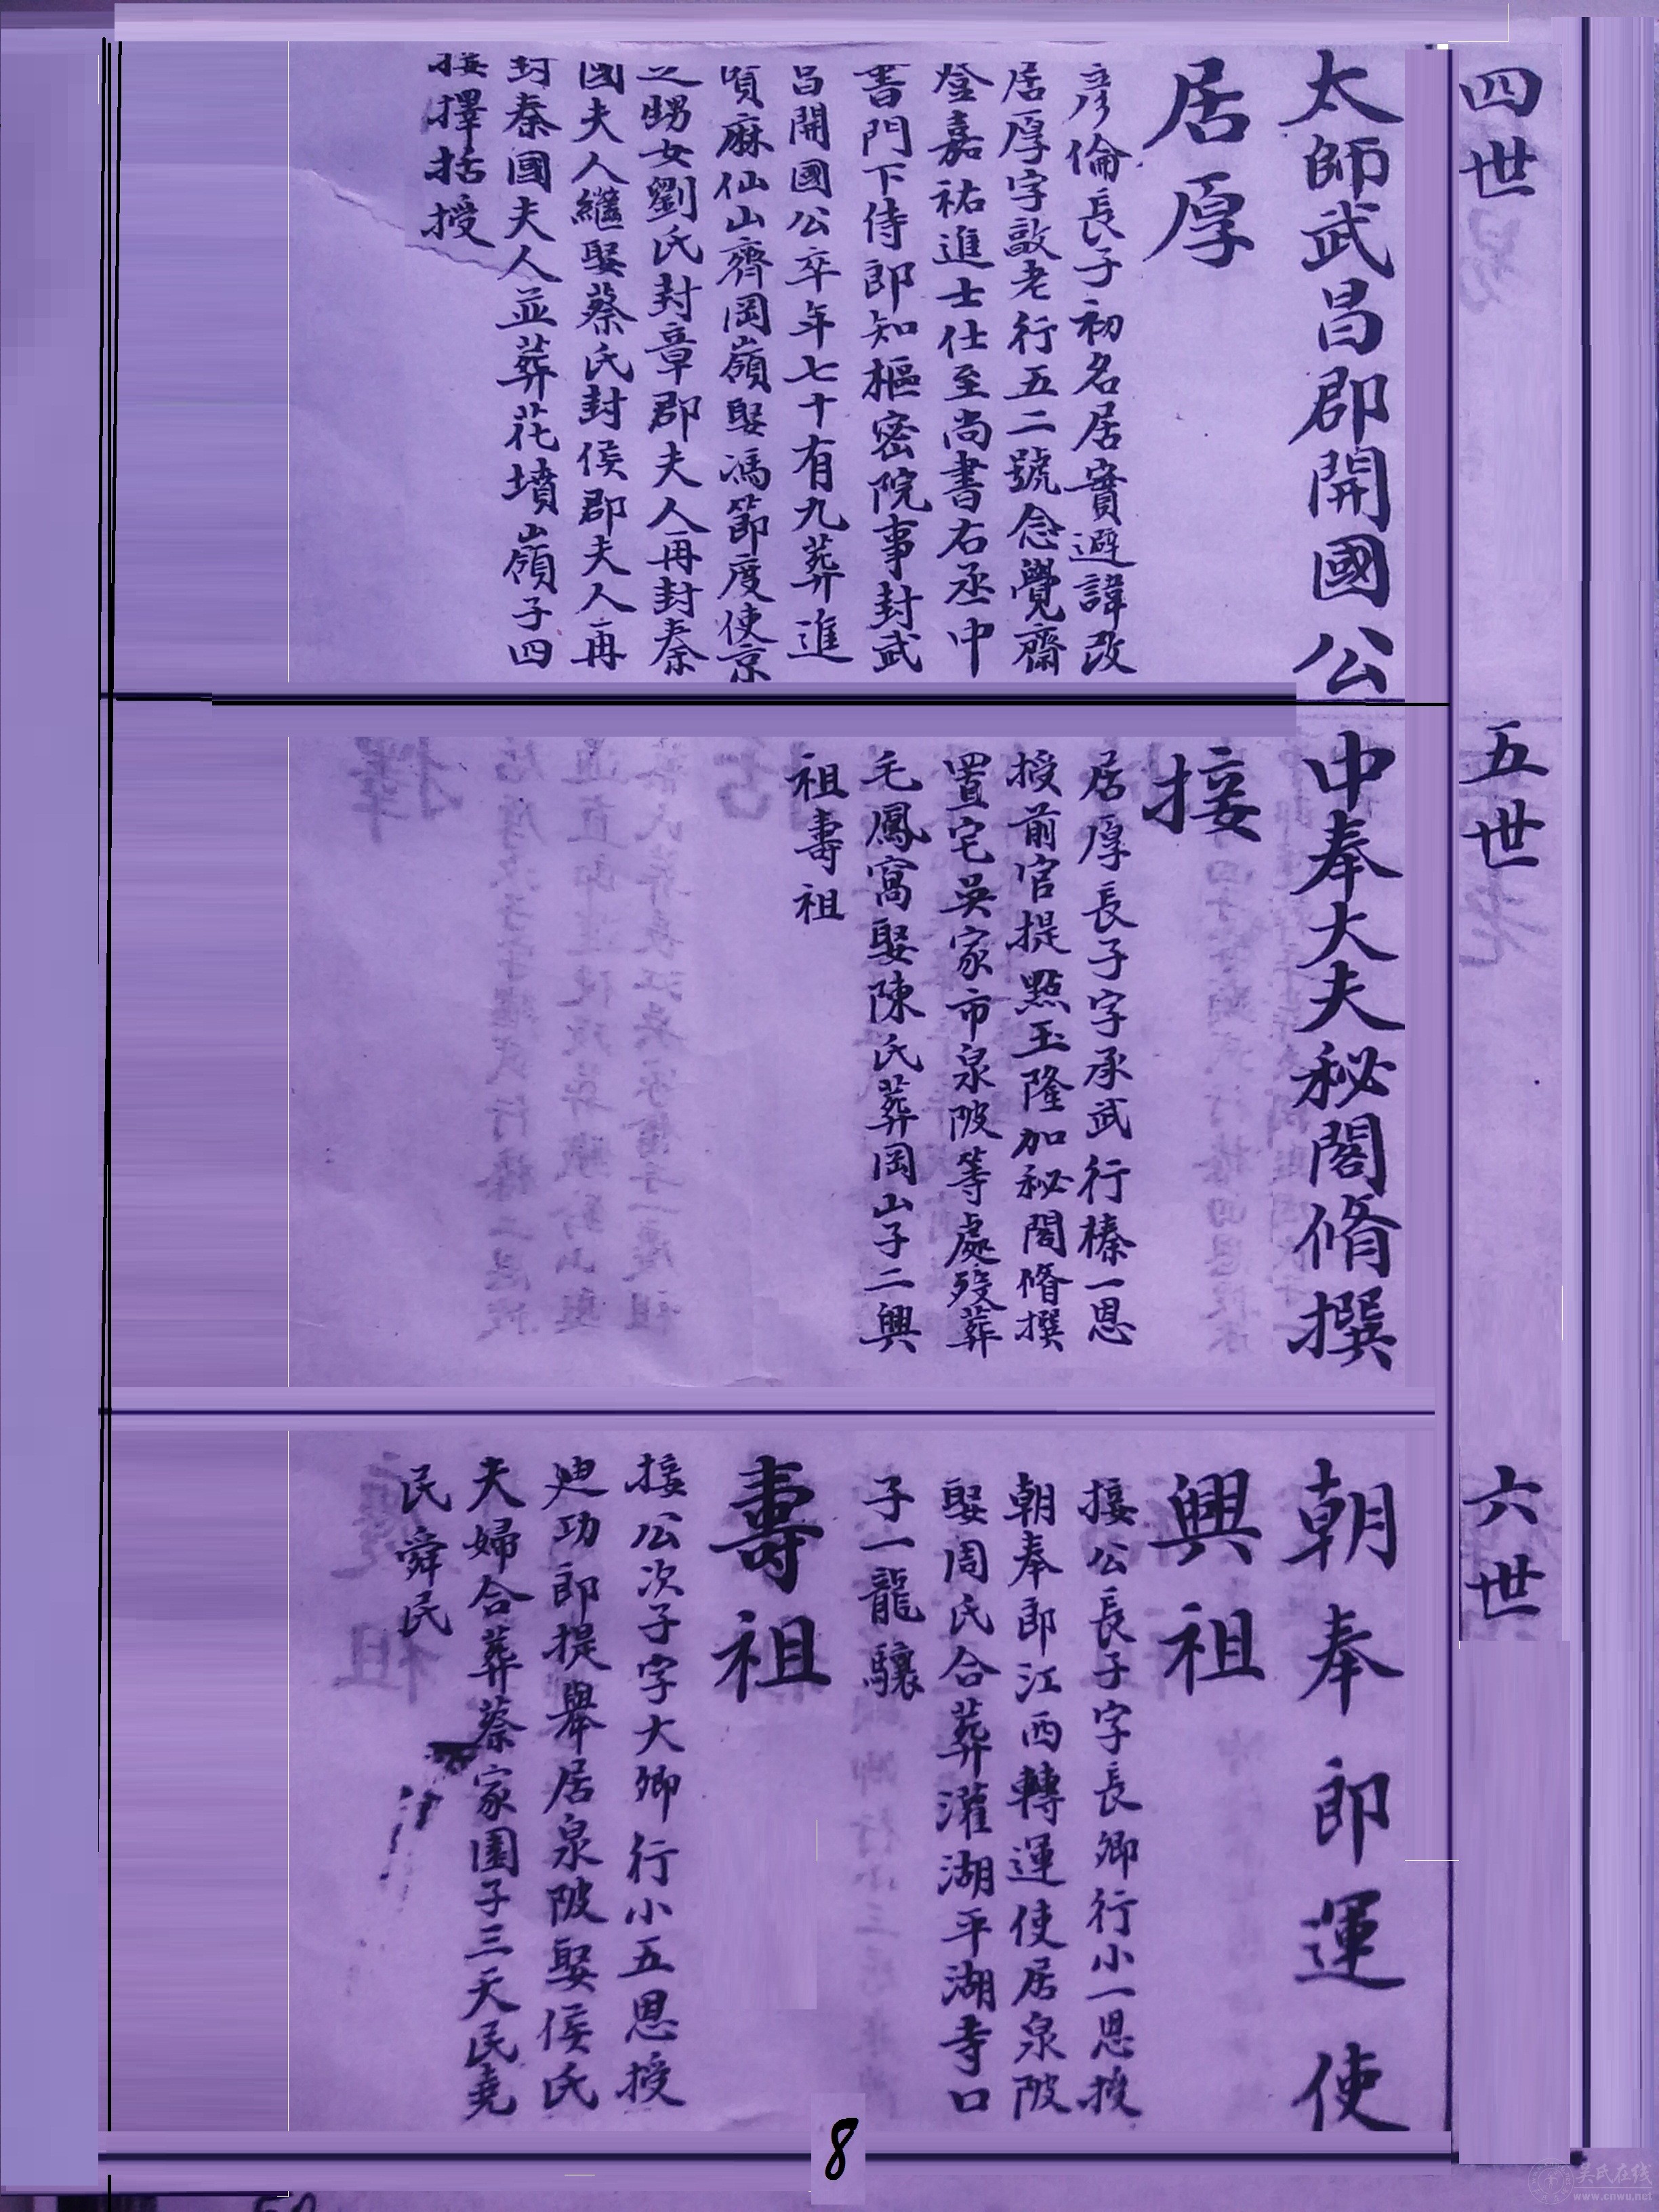 四世
太師武昌郡開國公
居厚
彥倫長子初名居實避諱改
居厚字敦老行五二號念覺齋
登嘉祐進士仕至尚書右丞中
書門下侍郎知樞密院事封武
昌開國公卒年七十有九葬進
賢麻仙山齊岡嶺娶馮節度使京
之甥女劉氏封章郡夫人再封秦
國夫人繼娶蔡氏封侯郡夫人再
封秦國夫人並葬花墳嶺子四
接擇括授
五世
中奉大夫秘閣脩撰
接
居厚長子字承武行榛一恩
授前官提點玉隆加秘閣脩撰
置宅吳家市泉陂等處歿葬
毛鳳窩娶陳氏葬岡山子二興
祖壽祖
六世
朝奉郎運使
興祖
接公長子字長卿行小一恩授
朝奉郎江西轉運使居泉陂
娶周氏合葬灌湖平湖寺口
子一龍驤
壽祖
接公次子字大卿行小五恩授
迪功郎提舉居泉陂娶侯氏
夫婦合葬蔡家園子三天民堯
民舜民
8
吴氏在线
www.cnwu.net